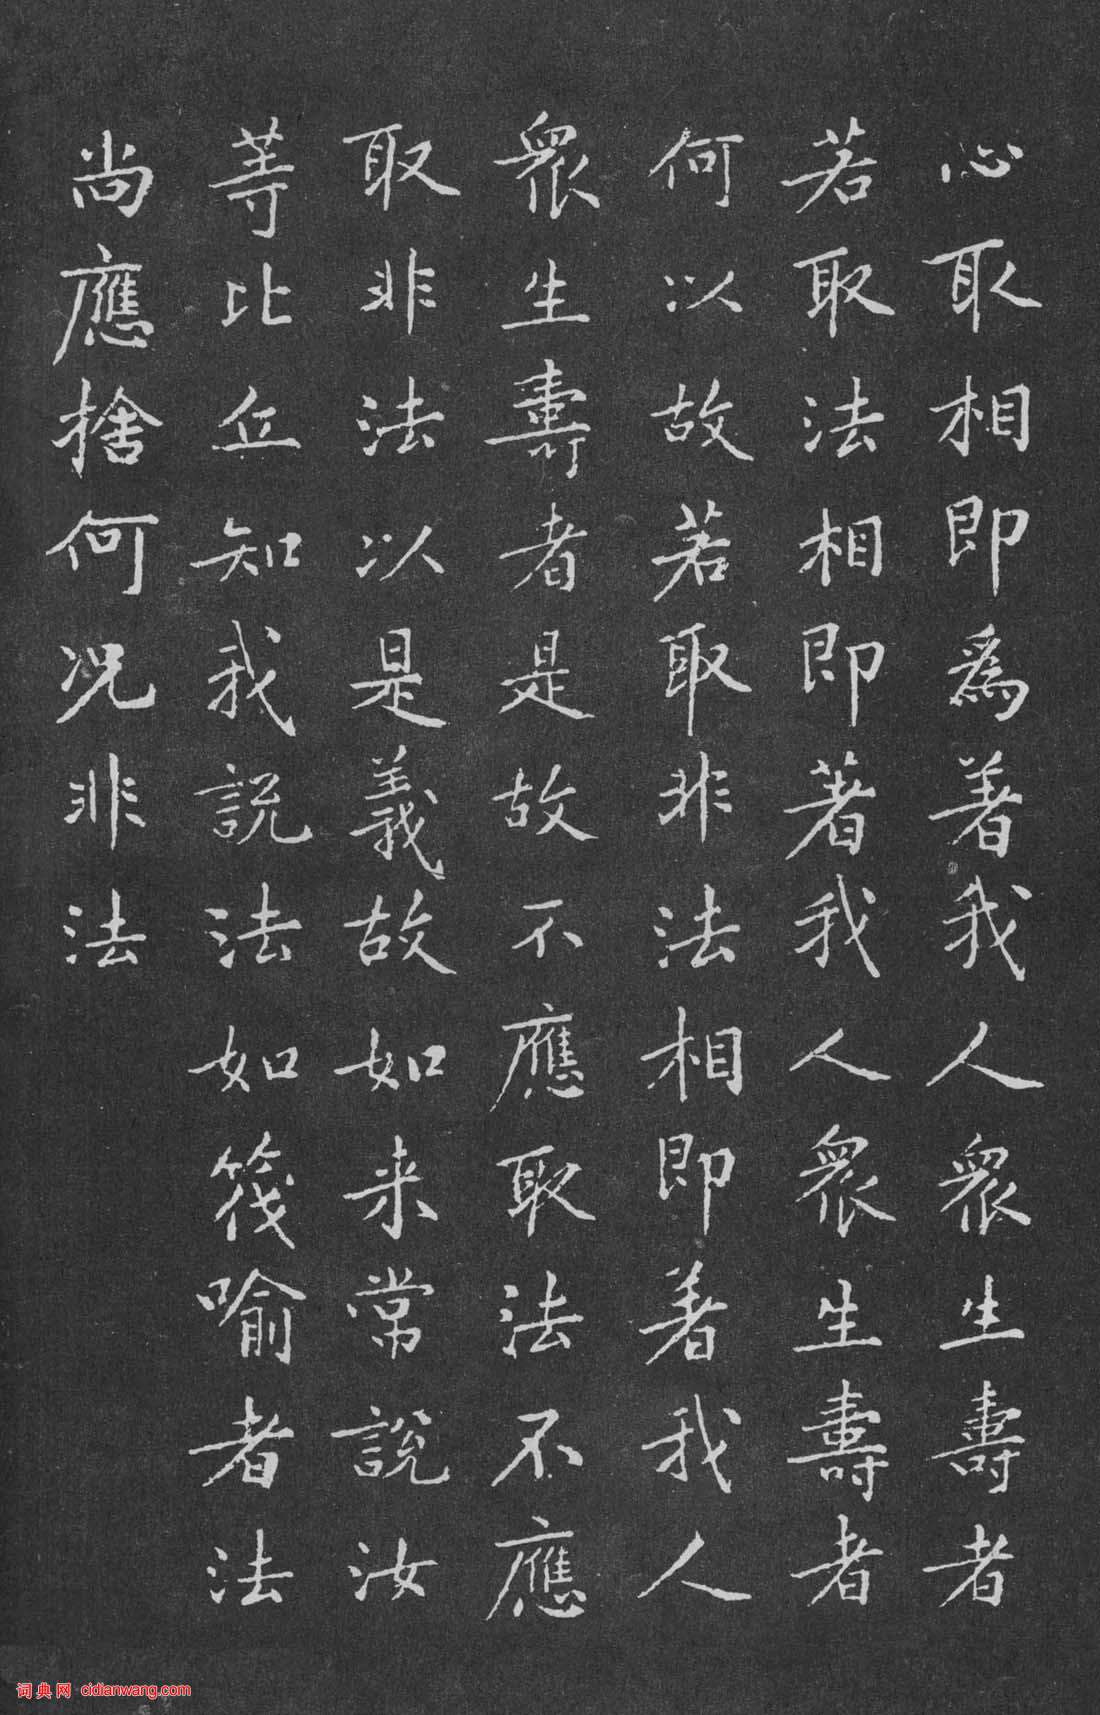 心取相即為著我人眾生壽者
若取法相即著我人眾生壽者
何以故若取非法相即著我人
眾生壽者是故不應取法不應
取非法以是義故如来常說汝
等比丘知我說法如筏喻者法
尚應捨何況非法
词典网 cidianwang.com